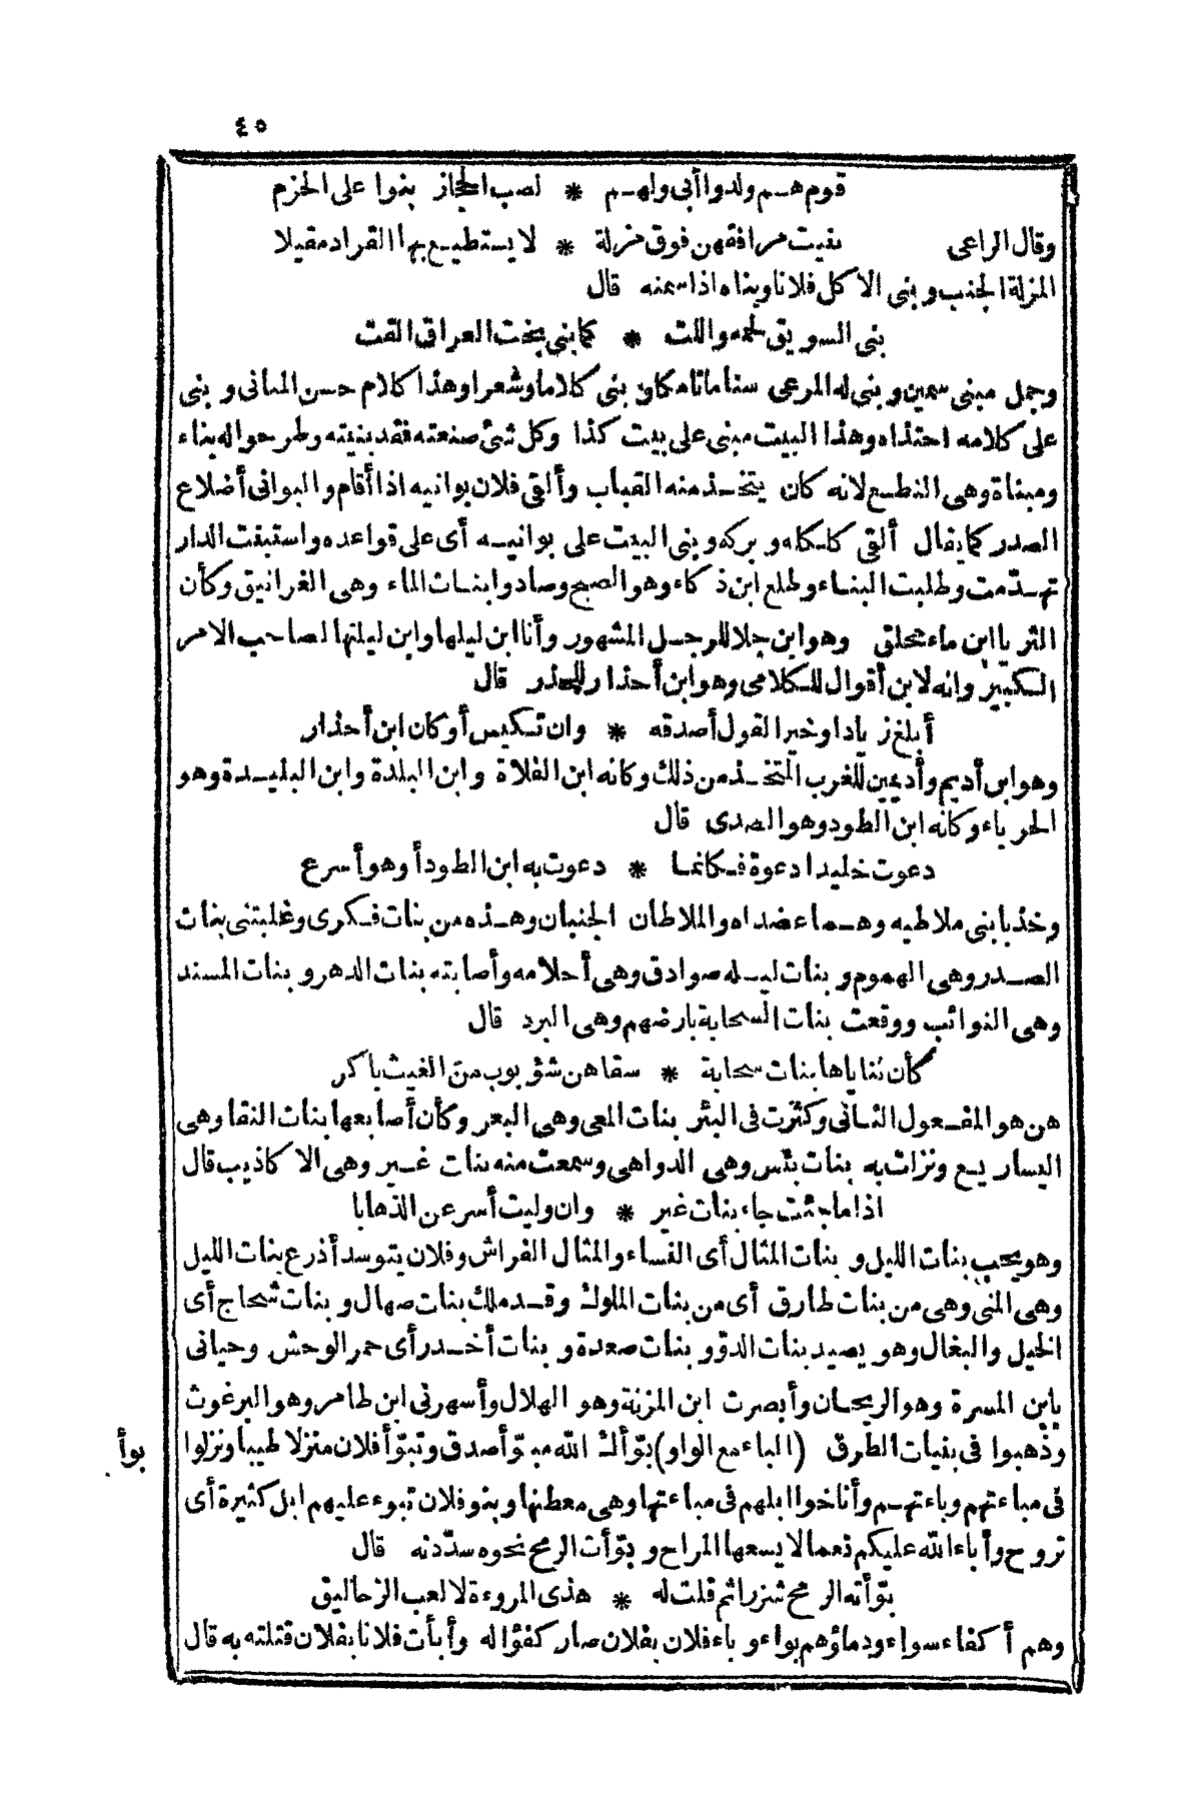 ٤٥
قوم هم ولدوا أبى ولهم * لصب الحجاز بنوا على الحزم
وقال الراعى بنيت مرافقهن فوق مزلة * لا يستطيع بها القراد مقيلا
المزلة الجنب وبنى الاكل فلانا وبناه اذا سمنه قال
بنى السويق لحمه واللت * كما بنى بخت العراق القت
وجمل مبنى سمين وبنى له المرعى سناما تامكا وبنى كلاما وشعرا وهذا كلام حسن المبانى وبنى
على كلامه احتذاه وهذا البيت مبنى على بيت كذا وكل شئ صنعته فقد بنيته وطرحوا له بناء
ومبناة وهى النطع لانه كان يتخذ منه القباب وألقى فلان بوانيه اذا أقام والبوانى أضلاع
الصدر كما يقال ألقى كلكله وبركه وبنى البيت على بوانيه أى على قواعده واستبنت الدار
تهدّمت وطلبت البناء وطلع ابن ذكاء وهو الصبح وصادوا بنات الماء وهى الغرانيق وكأن
الثريا ابن ماء محلق وهو ابن جلا للرجل المشهور وأنا ابن ليلها وابن ليلتها لصاحب الامر
الكبير وانه لابن أقوال للكلامى وهو ابن أحذار للحذر قال
أبلغ زيادا وخير القول أصدقه * وان تكيس أو كان ابن أحذار
وهو ابن أديم وأديمين للغرب المتخذ من ذلك وكانه ابن الفلاة وابن البلدة وابن البليدة وهو
الحرباء وكانه ابن الطود وهو الصدى قال
دعوت خليدا دعوة فكانما * دعوت به ابن الطود أ وهو أسرع
وخذ بابنى ملاطيه وهما عضداه والملاطان الجنبان وهذه من بنات فكرى وغلبتنى بنات
الصدر وهى الهموم وبنات ليله صوادق وهى أحلامه وأصابته بنات الدهر وبنات المسند
وهى النوائب ووقعت بنات السحابة بارضهم وهى البرد قال
كأن ثناياها بنات سحابة * سقاهن شؤبوب من الغيث باكر
هن هو المفعول الثانى وكثرت فى البئر بنات المعى وهى البعر وكأن أصابعها بنات النقا وهى
اليساريع ونزلت به بنات بئس وهى الدواهى وسمعت منه بنات غير وهى الاكاذيب قال
اذا ما جئت جاء بنات غير * وان وليت أسرعن الذهابا
وهو يحب بنات الليل وبنات المثال أى النساء والمثال الفراش وفلان يتوسد أذرع بنات الليل
وهى المنى وهى من بنات طارق أى من بنات الملوك وقد ملك بنات صهال وبنات شحاج أى
الخيل والبغال وهو يصيد بنات الدوّ وبنات صعدة وبنات أخدر أى حمر الوحش وحيانى
بابن المسرة وهو الريحان وأبصرت ابن المزنة وهو الهلال وأسهرنى ابن طامر وهو البرغوث
وذهبوا فى بنيات الطرق (الباء مع الواو) بوّأك الله مبوّأ صدق وتبوّأ فلان منزلا طيبا ونزلوا
بوأ
فى مباءتهم وباءتهم وأناخوا ابلهم فى مباءتها وهى معطنها وبنو فلان تبوء عليهم ابل كثيرة أى
تروح وأباء الله عليكم نعما لا يسعها المراح وبوّأت الرمح نحوه سدّدته قال
بوّأته الرمح شزرا ثم قلت له * هذى المروءة لا لعب الزحاليق
وهم أكفاء سواء ودماؤهم بواء وباء فلان بفلان صار كفؤا له وأبأت فلانا بفلان قتلته به قال